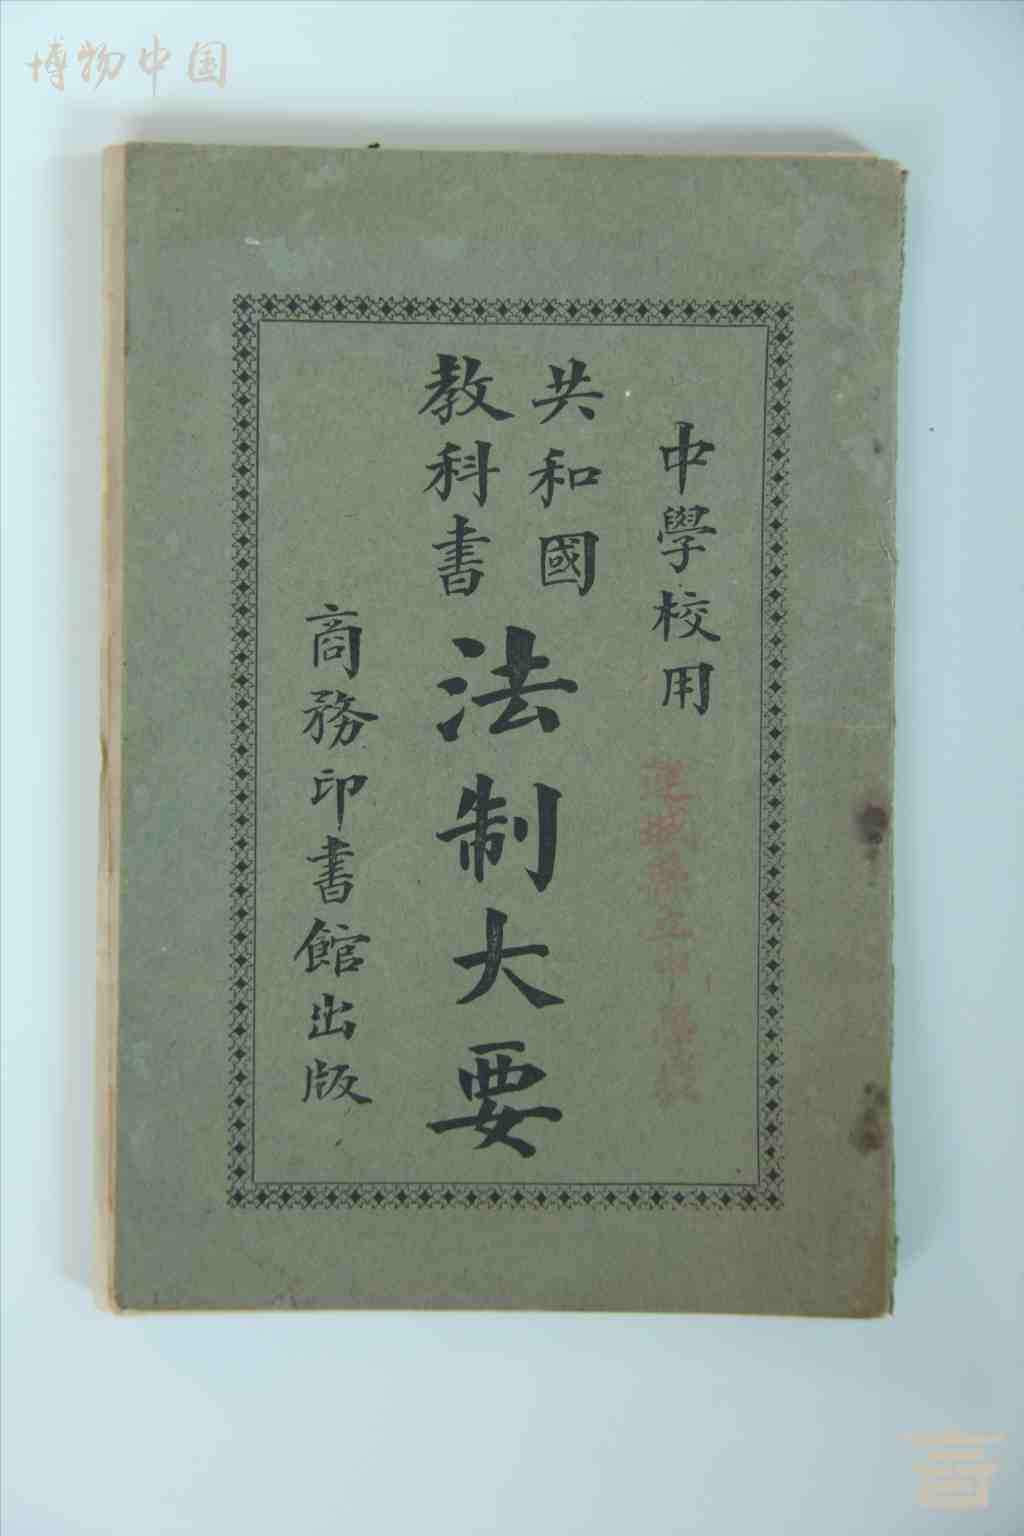 博物中国
中學校用
共和國
教科書
法制大要
商務印書館出版